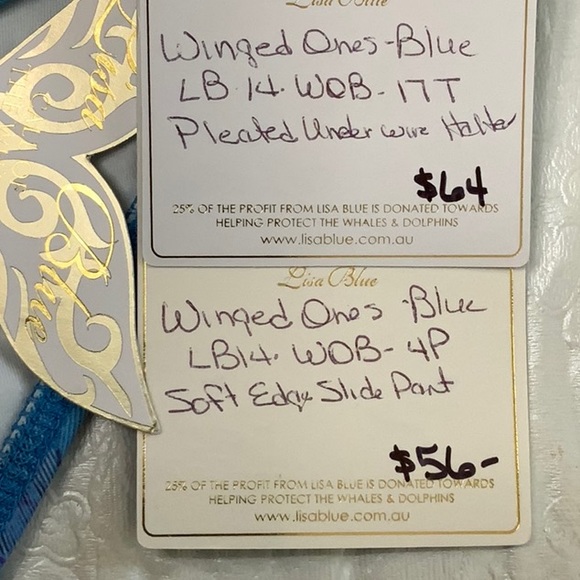 Lisa Blue
Winged Ones-Blue
LB14. WOB-17T
Pleated Under wire Halter
$64
25% OF THE PROFIT FROM LISA BLUE IS DONATED TOWARDS
HELPING PROTECT THE WHALES & DOLPHINS
www.lisablue.com.au
Lisa Blue
Winged Ones-Blue
LB14. WOB-4P
Soft Edge Slide Pant
$56-
25% OF THE PROFIT FROM LISA BLUE IS DONATED TOWARDS
HELPING PROTECT THE WHALES & DOLPHINS
www.lisablue.com.au
Lisa
Blue